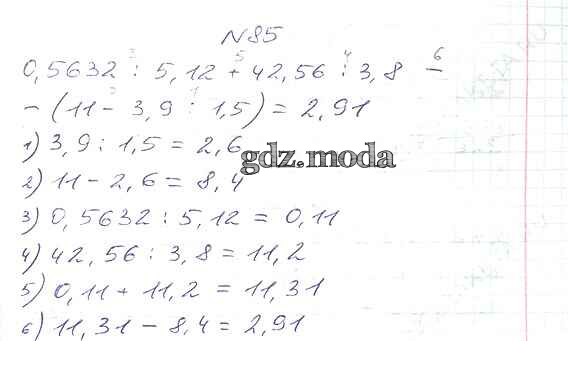 N85
0,5632 : 5,12 + 42,56 : 3,8 -
- (11 - 3,9 : 1,5) = 2,91
1) 3,9 : 1,5 = 2,6
gdz.moda
2) 11 - 2,6 = 8,4
3) 0,5632 : 5,12 = 0,11
4) 42,56 : 3,8 = 11,2
5) 0,11 + 11,2 = 11,31
6) 11,31 - 8,4 = 2,91